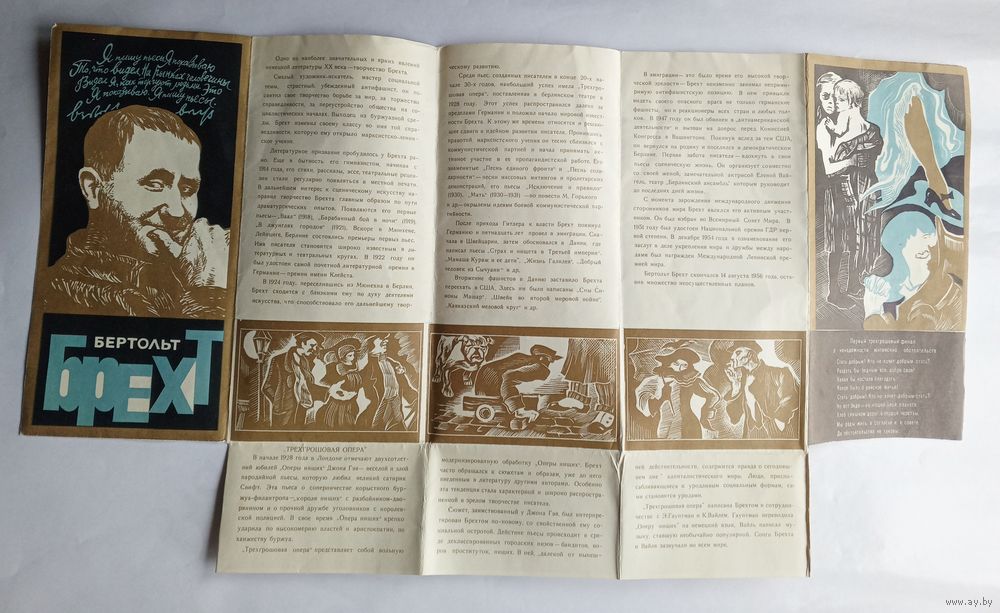 Я пишу пьесы. Я показываю
То, что видел. На рынках
Видел я, как торгуют людьми. Это
Я показываю. Я пишу пьесы.
БЕРТОЛЬТ
БРЕХТ
Одно из наиболее значительных и ярких явлений
немецкой литературы XX века — творчество Брехта.
Смелый художник-искатель, мастер социальной
темы, страстный, убежденный антифашист, он по-
святил свое творчество борьбе за мир, за торжество
справедливости, за переустройство общества на со-
циалистических началах. Выходец из буржуазной сре-
ды, Брехт изменил своему классу во имя той спра-
ведливости, которую ему открыло марксистско-ленин-
ское учение.
Литературное призвание пробудилось у Брехта ра-
но. Еще в бытность его гимназистом, начиная с
1914 года, его стихи, рассказы, эссе, театральные реце-
нзии стали регулярно появляться в местной печати.
В дальнейшем интерес к сценическому искусству на-
правил творчество Брехта главным образом по пути
драматургических опытов. Появляются его первые
пьесы — „Ваал" (1918), „Барабанный бой в ночи" (1919),
„В джунглях городов" (1921). Вскоре в Мюнхене,
Лейпциге, Берлине состоялись премьеры первых пьес.
Имя писателя становится широко известным в ли-
тературных и театральных кругах. В 1922 году он
был удостоен самой почетной литературной премии в
Германии — премии имени Клейста.
В 1924 году, переселившись из Мюнхена в Берлин,
Брехт сходится с близкими ему по духу деятелями
искусства, что способствовало его дальнейшему твор-
ческому развитию.
Среди пьес, созданных писателем в конце 20-х — на-
чале 30-х годов, наибольший успех имела „Трехгро-
шовая опера", поставленная в берлинском театре в
1928 году. Этот успех распространился далеко за
пределами Германии и положил начало мировой извест-
ности Брехта. К этому же времени относится и решаю-
щее
сдвиг в идейном развитии писателя. Проникшись
правотой марксистского учения он тесно сблизился с
коммунистической партией и начал принимать ак-
тивное участие в ее пропагандистской работе. Его
знаменитые „Песнь единого фронта" и „Песнь соли-
дарности" — песни массовых митингов и пролетарских
демонстраций, его пьесы „Исключение и правило"
(1930), „Мать" (1930—1931) — по повести М. Горького
и др.— окрылены идеями боевой коммунистической пар-
тийности.
После прихода Гитлера к власти Брехт покинул
Германию и пятнадцать лет провел в эмиграции. Сна-
чала в Швейцарии, затем обосновался в Дании, где
написал пьесы „Страх и нищета в Третьей империи",
„Мамаша Кураж и ее дети", „Жизнь Галилея", „Добрый
человек из Сычуани" и др.
Вторжение фашистов в Данию заставило Брехта
переехать в США. Здесь им были написаны „Сны Си-
моны Машар", „Швейк во второй мировой войне",
„Кавказский меловой круг" и др.
В эмиграции — это было время его высокой твор-
ческой зрелости — Брехт неизменно занимал непримири-
мую антифашистскую позицию. В нем привыкли
видеть своего опасного врага не только германские
фашисты, но и реакционеры всех стран и любых тол-
ков. В 1947 году он был обвинен в „антиамериканской
деятельности" и вызван на допрос перед Комиссией
Конгресса в Вашингтоне. Покинув вслед за тем США,
он вернулся на родину и поселился в демократическом
Берлине. Первая забота писателя — вдохнуть в свои
пьесы сценическую жизнь. Он организует совместно
со своей женой, замечательной актрисой Еленой Вай-
гель, театр „Берлинский ансамбль", которым руководит
до последних дней жизни.
С момента зарождения международного движения
сторонников мира Брехт являлся его активным участ-
ником. Он был избран во Всемирный Совет Мира. В
1951 году был удостоен Национальной премии ГДР пер-
вой степени. В декабре 1954 года в ознаменование его
заслуг в деле укрепления мира и дружбы между наро-
дами был награжден Международной Ленинской пре-
мией мира.
Бертольт Брехт скончался 14 августа 1956 года, оста-
вив множество неосуществленных планов.
Первый трехгрошовый финал
о ненадежности житейских обстоятельств
Стать добрым! Кто не хочет добрым стать?
Раздать бы бедным все добро свое!
Какая бы настала благодать!
Какое было б райское житье!
Стать добрым! Кто не хочет добрым стать?!
Но вот беда — на нашей злой планете
Хлеб слишком дорог, а сердца черствы.
Мы рады жить в согласье и в совете,
Да обстоятельства не таковы.
„ТРЕХГРОШОВАЯ ОПЕРА"
В начале 1928 года в Лондоне отмечают двухсотлет-
ний юбилей „Оперы нищих" Джона Гэя — веселой и злой
пародийной пьесы, которую любил великий сатирик
Свифт. Эта пьеса о соперничестве корыстного бур-
жуа-филантропа — „короля нищих" с разбойником-дво-
рянином и о прочной дружбе уголовников с королев-
ской полицией. В свое время „Опера нищих" крепко
ударила по высокомерию властей и аристократии, по
ханжеству буржуа.
„Трехгрошовая опера" представляет собой вольную
модернизированную обработку „Оперы нищих". Брехт
часто обращался к сюжетам и образам, уже до него
введенным в литературу другими авторами. Особенно
эта тенденция стала характерной и широко распростране-
нной в зрелом творчестве писателя.
Сюжет, заимствованный у Джона Гэя, был интерпре-
тирован Брехтом по-новому, со свойственной ему со-
циальной остротой. Действие пьесы происходит в сре-
де деклассированных городских низов — бандитов, во-
ров, проституток, нищих. В ней, „далекой от нынеш-
ней действительности, содержится правда о сегодняш-
нем дне" капиталистического мира. Люди, приспо-
сабливающиеся к уродливым социальным формам, са-
ми становятся уродами.
„Трехгрошовая опера" написана Брехтом в сотрудни-
честве с Э.Гауптман и К.Вайлем. Гауптман переводила
„Оперу нищих" на немецкий язык. Вайль написал му-
зыку, ставшую необычайно популярной. Сонги Брехта
и Вайля зазвучали во всем мире.
www.ay.by